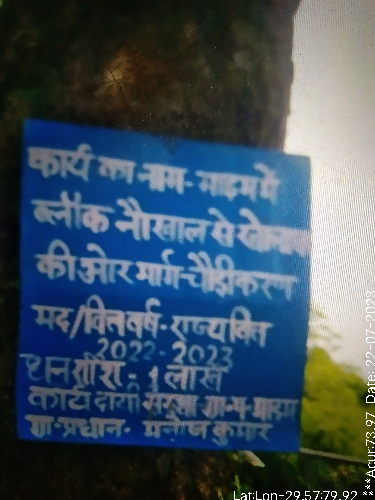 कार्य का नाम- माइम में
ब्लौक नौसाल से
की ओर मार्ग चौड़ीकरण
मद/वित्त वर्ष- राज्य वित्त
2022-2023
धनराशि- 1 लाख
कार्य दायी संस्था ग्रा-प-माइम
ग्रा-प्रधान- मनोज कुमार
Lat:Lon-29.57:79.92 ***Acur:73.97 Date: 22-07-2023